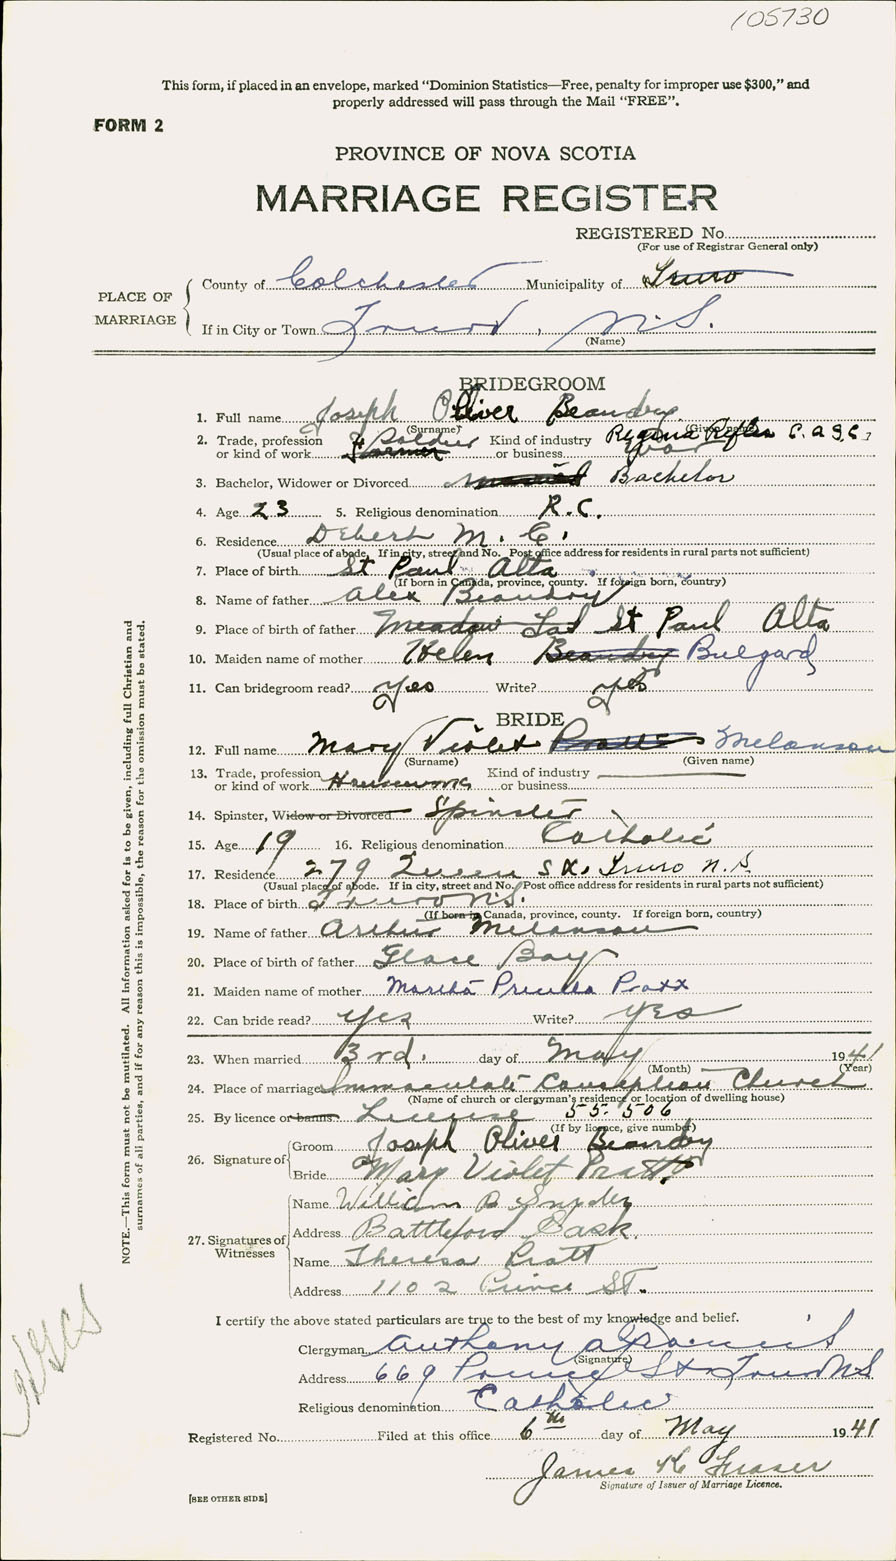 105730
This form, if placed in an envelope, marked "Dominion Statistics—Free, penalty for improper use $300," and
properly addressed will pass through the Mail "FREE".
FORM 2
PROVINCE OF NOVA SCOTIA
MARRIAGE REGISTER
REGISTERED No.
(For use of Registrar General only)
PLACE OF MARRIAGE
County of Colchester Municipality of Truro
If in City or Town Truro, N.S.
(Name)
BRIDEGROOM
1. Full name Joseph Oliver Beaudry
(Surname) (Given name)
2. Trade, profession or kind of work Soldier Farmer Kind of industry or business Regina Rifles C.A.S.F. War
3. Bachelor, Widower or Divorced Bachelor
4. Age 23 5. Religious denomination R.C.
6. Residence Debert M. C.
(Usual place of abode. If in city, street and No. Post office address for residents in rural parts not sufficient)
7. Place of birth St Paul Alta
(If born in Canada, province, county. If foreign born, country)
8. Name of father Alex Beaudry
9. Place of birth of father Meadow St Paul Alta
10. Maiden name of mother Helen Beaudry
11. Can bridegroom read? yes Write? yes
BRIDE
12. Full name Mary Violet Pratt Melanson
(Surname) (Given name)
13. Trade, profession or kind of work Housework Kind of industry or business
14. Spinster, Widow or Divorced Spinster
15. Age 19 16. Religious denomination Catholic
17. Residence 279 Queen St. Truro N.S.
(Usual place of abode. If in city, street and No. Post office address for residents in rural parts not sufficient)
18. Place of birth Truro N.S.
(If born in Canada, province, county. If foreign born, country)
19. Name of father Arthur Melanson
20. Place of birth of father Glace Bay
21. Maiden name of mother Martha Pratt
22. Can bride read? yes Write? yes
23. When married 3rd. day of May 1941
(Month) (Year)
24. Place of marriage Immaculate Conception Church
(Name of church or clergyman's residence or location of dwelling house)
25. By licence or banns License 55.506
(If by licence, give number)
26. Signature of
Groom Joseph Oliver Beaudry
Bride Mary Violet Pratt
27. Signatures of Witnesses
Name William B Snyder
Address Battleford Sask.
Name Theresa Pratt
Address 1102 Prince St.
I certify the above stated particulars are true to the best of my knowledge and belief.
Clergyman Anthony
(Signature)
Address 669 Prince St Truro N.S.
Religious denomination Catholic
Registered No. Filed at this office 6th day of May 1941
James K Fraser
Signature of Issuer of Marriage Licence.
[SEE OTHER SIDE]
NOTE.—This form must not be mutilated. All information asked for is to be given, including full Christian and
surnames of all parties, and if for any reason this is impossible, the reason for the omission must be stated.